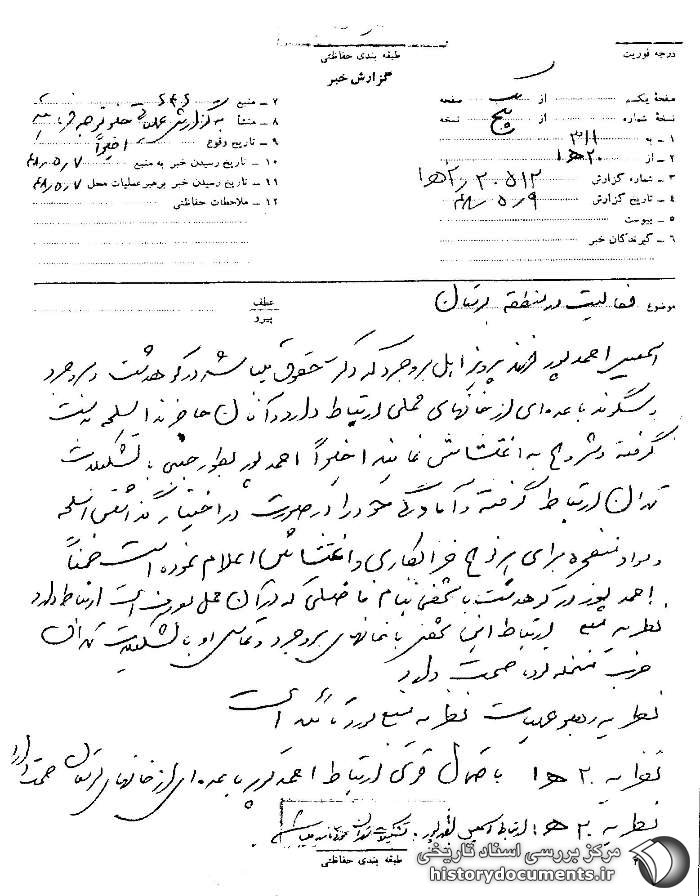 طبقه بندی حفاظتی
درجه فوریت
گزارش خبر
صفحهٔ یک از صفحه
نسخهٔ شماره از پنج نسخه
۱ - به ۳۱۱
۲ - از ۲۰ ه‍ ۱
۳ - شماره گزارش ۲۰۵۱۲ / ۲۰ ه‍ ۱
۴ - تاریخ گزارش ۴۸٫۵٫۹
۵ - پیوست
۶ - گیرندگان خبر
۷ - منبع
۸ - منشأ
۹ - تاریخ وقوع اخیراً
۱۰ - تاریخ رسیدن خبر به منبع ۴۸٫۵٫۷
۱۱ - تاریخ رسیدن خبر برهبر عملیات محل ۴۸٫۵٫۷
۱۲ - ملاحظات حفاظتی
موضوع فعالیت در منطقه لرستان
عطف
پیرو
اسمعیل احمدپور فرزند پرویز اهل بروجرد که دکتر حقوق میباشد در کوهدشت و بروجرد
با عده‌ای از خانهای محلی ارتباط دارد و آنان حاضرند اسلحه بدست
گرفته و شروع به اغتشاش نمایند اخیراً احمدپور بطور جنبی با تشکیلات
تهران ارتباط گرفته و آمادگی خود را در صورت در اختیار گذاشتن اسلحه
و مواد منفجره برای هر نوع خرابکاری و اغتشاش اعلام نموده است ضمناً
احمدپور در کوهدشت با شخصی بنام فاضلی که در آن محل معروف است ارتباط دارد
نظریه منبع ارتباط این شخص با خانهای بروجرد و تماس او با تشکیلات تهران
حزب منحله توده صحت دارد
نظریه رهبر عملیات نظریه منبع مورد تأئید است
نظریه ۲۰ ه‍ ۱ باحتمال قوی ارتباط احمدپور با عده‌ای از خانهای لرستان صحت دارد
نظریه ۲۰ ه‍ : ارتباط اسمعیل احمدپور با تشکیلات تهران
طبقه بندی حفاظتی
مرکز بررسی اسناد تاریخی
historydocuments.ir